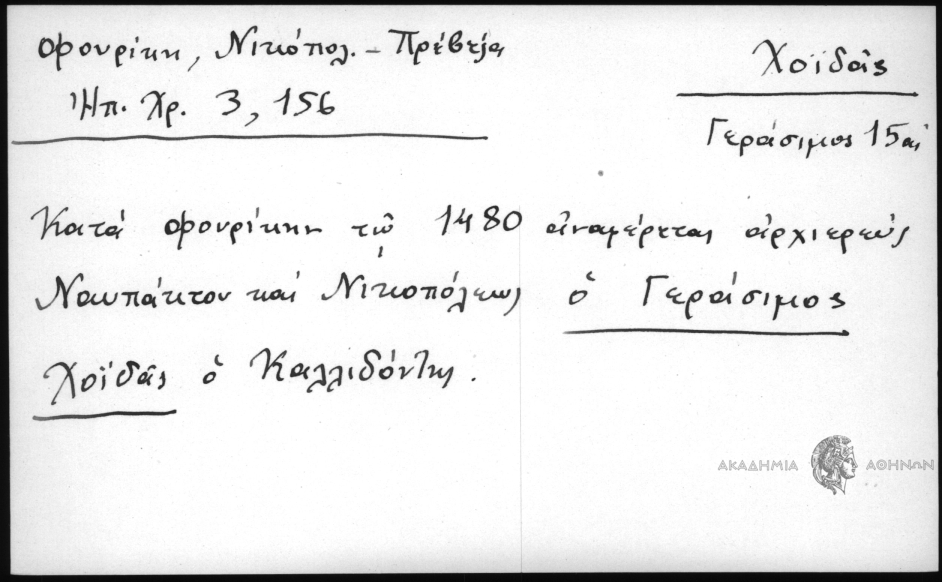 Φουρίκη, Νικόπολ. - Πρέβεζα
Ἠπ. Χρ. 3, 156
Χοϊδᾶς
Γεράσιμος 15 αἰ
Κατά Φουρίκην τῷ 1480 ἀναφέρεται ἀρχιερεύς
Ναυπάκτου καί Νικοπόλεως ὁ Γεράσιμος
Χοϊδᾶς ὁ Καλλιδόντης.
ΑΚΑΔΗΜΙΑ ΑΘΗΝΩΝ